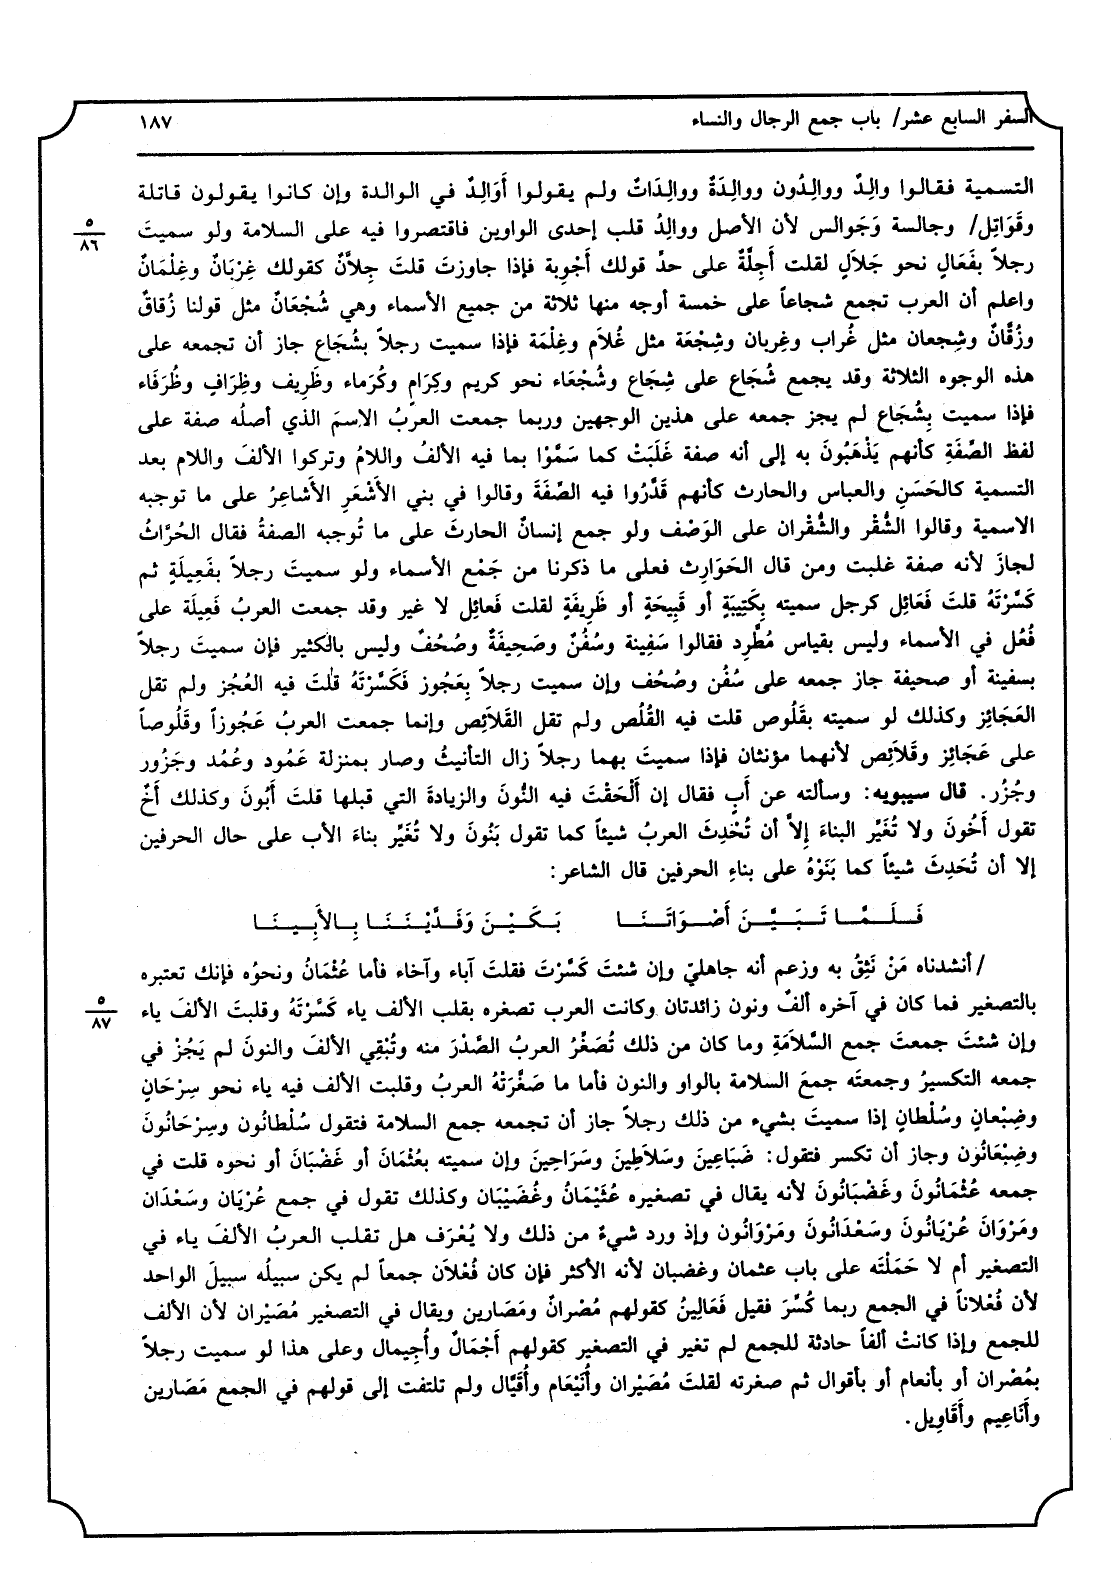 السفر السابع عشر/ باب جمع الرجال والنساء ١٨٧
التسمية فقالوا والِدٌ ووالِدُون ووالِدَةٌ ووالِدَاتٌ ولم يقولوا أَوَالِدٌ في الوالدة وإن كانوا يقولون قاتلة
وقَوَاتِل/ وجالسة وَجَوالس لأن الأصل ووالِدُ قلب إحدى الواوين فاقتصروا فيه على السلامة ولو سميتَ
٥
٨٦
رجلاً بفَعَالٍ نحو جَلَالٍ لقلت أَجِلَّةٌ على حدِّ قولك أَجْوِبة فإذا جاوزتَ قلتَ جِلاَّنٌ كقولك غِرْبَانٌ وغِلْمَانٌ
واعلم أن العرب تجمع شجاعاً على خمسة أوجه منها ثلاثة من جميع الأسماء وهي شُجْعَانٌ مثل قولنا زُقاقٌ
وزُقَّانٌ وشِجعان مثل غُراب وغِربان وشِجْعَة مثل غُلَام وغِلْمَة فإذا سميت رجلاً بشُجَاع جاز أن تجمعه على
هذه الوجوه الثلاثة وقد يجمع شُجَاع على شِجَاع وشُجْعَاء نحو كريم وكِرَامٍ وكُرَماء وظَرِيف وظِرَافٍ وظُرَفَاء
فإذا سميت بِشُجَاع لم يجز جمعه على هذين الوجهين وربما جمعت العربُ الاسمَ الذي أصلُه صفة على
لفظ الصِّفَةِ كأنهم يَذْهَبُونَ به إلى أنه صفة غَلَبَتْ كما سَمَّوْا بما فيه الألفُ واللامُ وتركوا الألفَ واللام بعد
التسمية كالحَسَنِ والعباس والحارث كأنهم قَدَّرُوا فيه الصِّفَةَ وقالوا في بني الأَشْعَرِ الأَشاعِرُ على ما توجبه
الاسمية وقالوا الشُّقْر والشُّقْران على الوَصْف ولو جمع إنسانٌ الحارثَ على ما تُوجبه الصفةُ فقال الحُرَّاثُ
لجازَ لأنه صفة غلبت ومن قال الحَوَارِث فعلى ما ذكرنا من جَمْع الأسماء ولو سميتَ رجلاً بفَعِيلَةٍ ثم
كَسَّرْتَهُ قلتَ فَعَائِل كرجل سميته بِكَتِيبَةٍ أو قَبِيحَةٍ أو ظَرِيفَةٍ لقلت فَعائِل لا غير وقد جمعت العربُ فَعِيلَة على
فُعُل في الأسماء وليس بقياس مُطَّرِد فقالوا سَفِينة وسُفُنٌ وصَحِيفَةٌ وصُحُفٌ وليس بالكثير فإن سميتَ رجلاً
بسفينة أو صحيفة جاز جمعه على سُفُن وصُحُف وإن سميت رجلاً بِعَجُوز فَكَسَّرْتَهُ قلتَ فيه العُجُز ولم تقل
العَجَائِز وكذلك لو سميته بقَلُوص قلت فيه القُلُص ولم تقل القَلاَئِص وإنما جمعت العربُ عَجُوزاً وقَلُوصاً
على عَجَائِز وقَلاَئِص لأنهما مؤنثان فإذا سميتَ بهما رجلاً زال التأنيثُ وصار بمنزلة عَمُود وعُمُد وجَزُور
وجُزُر. قال سيبويه: وسألته عن أَبٍ فقال إن أَلْحَقْتَ فيه النُّونَ والزيادةَ التي قبلها قلتَ أَبُونَ وكذلك أَخٌ
تقول أَخُونَ ولا تُغَيِّر البناءَ إلاَّ أن تُحْدِثَ العربُ شيئاً كما تقول بَنُونَ ولا تُغَيِّر بناءَ الأب على حال الحرفين
إلا أن تُحَدِثَ شيئاً كما بَنَوْهُ على بناءِ الحرفين قال الشاعر:
فَلَمَّا تَبَيَّنَ أَصْوَاتَنَا بَكَيْنَ وَفَدَّيْنَنَا بِالأَبِينَا
/أنشدناه مَنْ نَثِقُ به وزعم أنه جاهليّ وإن شئتَ كَسَّرْتَ فقلتَ آباء وآخاء فأما عُثْمَانُ ونحوُه فإنك تعتبره
بالتصغير فما كان في آخره ألفٌ ونون زائدتان وكانت العرب تصغره بقلب الألف ياء كَسَّرْتَهُ وقلبتَ الألفَ ياء
٥
٨٧
وإن شئتَ جمعتَ جمع السَّلاَمَةِ وما كان من ذلك تُصَغِّرُ العربُ الصَّدْرَ منه وتُبْقِي الألفَ والنونَ لم يَجُزْ في
جمعه التكسيرُ وجمعتَه جمعَ السلامة بالواو والنون فأما ما صَغَّرَتْهُ العربُ وقلبت الألف فيه ياء نحو سِرْحَانٍ
وضِبْعانٍ وسُلْطانٍ إذا سميتَ بشيء من ذلك رجلاً جاز أن تجمعه جمع السلامة فتقول سُلْطانُون وسِرْحَانُونَ
وضِبْعَانُون وجاز أن تكسر فتقول: ضَبَاعِينَ وسَلاَطِينَ وسَرَاحِينَ وإن سميته بعُثْمَانَ أو غَضْبَانَ أو نحوه قلت في
جمعه عُثْمَانُونَ وغَضْبَانُونَ لأنه يقال في تصغيره عُثَيْمَانُ وغُضَيْبَان وكذلك تقول في جمع عُرْيَان وسَعْدَان
ومَرْوَانَ عُرْيَانُونَ وسَعْدَانُونَ ومَرْوَانُون وإذ ورد شيءٌ من ذلك ولا يُعْرَف هل تقلب العربُ الألفَ ياء في
التصغير أم لا حَمَلْتَه على باب عثمان وغضبان لأنه الأكثر فإن كان فُعْلاَن جمعاً لم يكن سبيلُه سبيلَ الواحد
لأن فُعْلاناً في الجمع ربما كُسِّرَ فقيل فَعَالِينُ كقولهم مُصْرانٌ ومَصَارين ويقال في التصغير مُصَيْران لأن الألف
للجمع وإذا كانتْ ألفاً حادثة للجمع لم تغير في التصغير كقولهم أَجْمَالٌ وأُجِيمال وعلى هذا لو سميت رجلاً
بمُصْران أو بأنعام أو بأقوال ثم صغرته لقلتَ مُصَيْران وأُنَيْعَام وأُقَيَّال ولم تلتفت إلى قولهم في الجمع مَصَارين
وأَنَاعِيم وأَقَاوِيل.